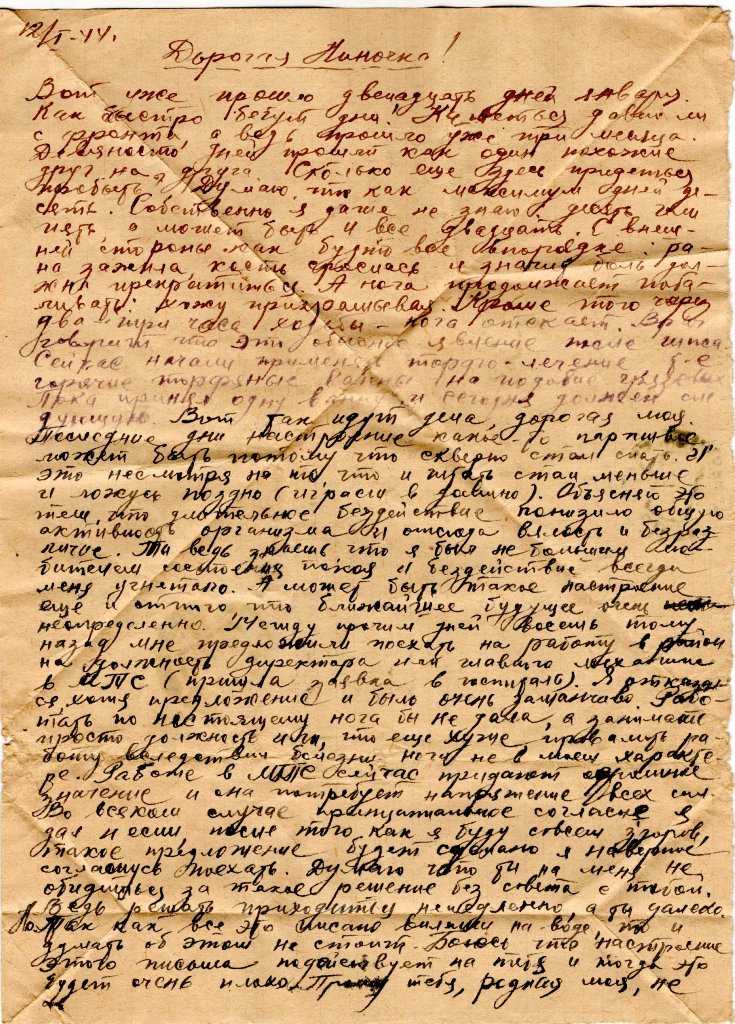 12/I-44.
Дорогая Ниночка!
Вот уже прошло двенадцать дней января.
Как быстро бегут дни! Кажеться давно ли
с фронта а ведь прошло уже три месяца.
Девяносто дней прошли как один похожие
друг на друга. Сколько еще здесь придеться
пробыть? Думаю что как максимум дней де-
сять. Собственно я даже не знаю десять или
пять а может быть и все двадцать. С внеш-
ней стороны как будто все впорядке: ра-
на зажила, кость срослась и значит боль дол-
жна прекратиться. А нога продолжает поба-
ливать: хожу прихрамывая. Кроме того через
два-три часа ходьбы - нога отекает. Врач
говорит что это обычное явление после гипса.
Сейчас начали применять торфо-лечение т-е
горячие торфяные ванны на подобие грязевых.
Пока принял одну ванну и сегодня должен сле-
дующую. Вот так идут дела, дорогая моя.
Последние дни настроение какое-то паршивое
может быть потому что скверно стал спать. И
это несмотря на то, что и спать стал меньше
и ложусь поздно (играем в домино). Объясняю это
тем, что длительное бездействие понизило общую
активность организма и отсюда вялость и безраз-
личие. Ты ведь знаешь что я был не большим лю-
бителем состояния покоя и бездействие всегда
меня угнетало. А может быть такое настроение
еще и оттого что ближайшее будущее очень
неопределенно. Между прочим дней восемь тому
назад мне предложили поехать на работу в район
на должность директора или главного механика
в МТС (пришла заявка в госпиталь). Я отказал-
ся, хотя предложение и было очень заманчиво. Рабо-
тать по настоящему нога бы не дала, а занимать
просто должность или, что еще хуже проваливать ра-
боту вследствии болезни ноги не в моем характе-
ре. Работе в МТС сейчас придают огромное
значение и она потребует напряжение всех сил.
Во всяком случае принципиальное согласие я
дал и если, после того как я буду совсем здоров,
такое предложение будет сделано я наверное
соглашусь поехать. Думаю что ты на меня не
обидишься за такое решение без совета с тобой.
Ведь решать приходиться немедленно, а ты далеко.
Но так как все это писано вилами на воде, то и
думать об этом не стоит. Боюсь что настроение
этого письма подействует на тебя и тогда это
будет очень плохо. Прошу тебя, родная моя, не